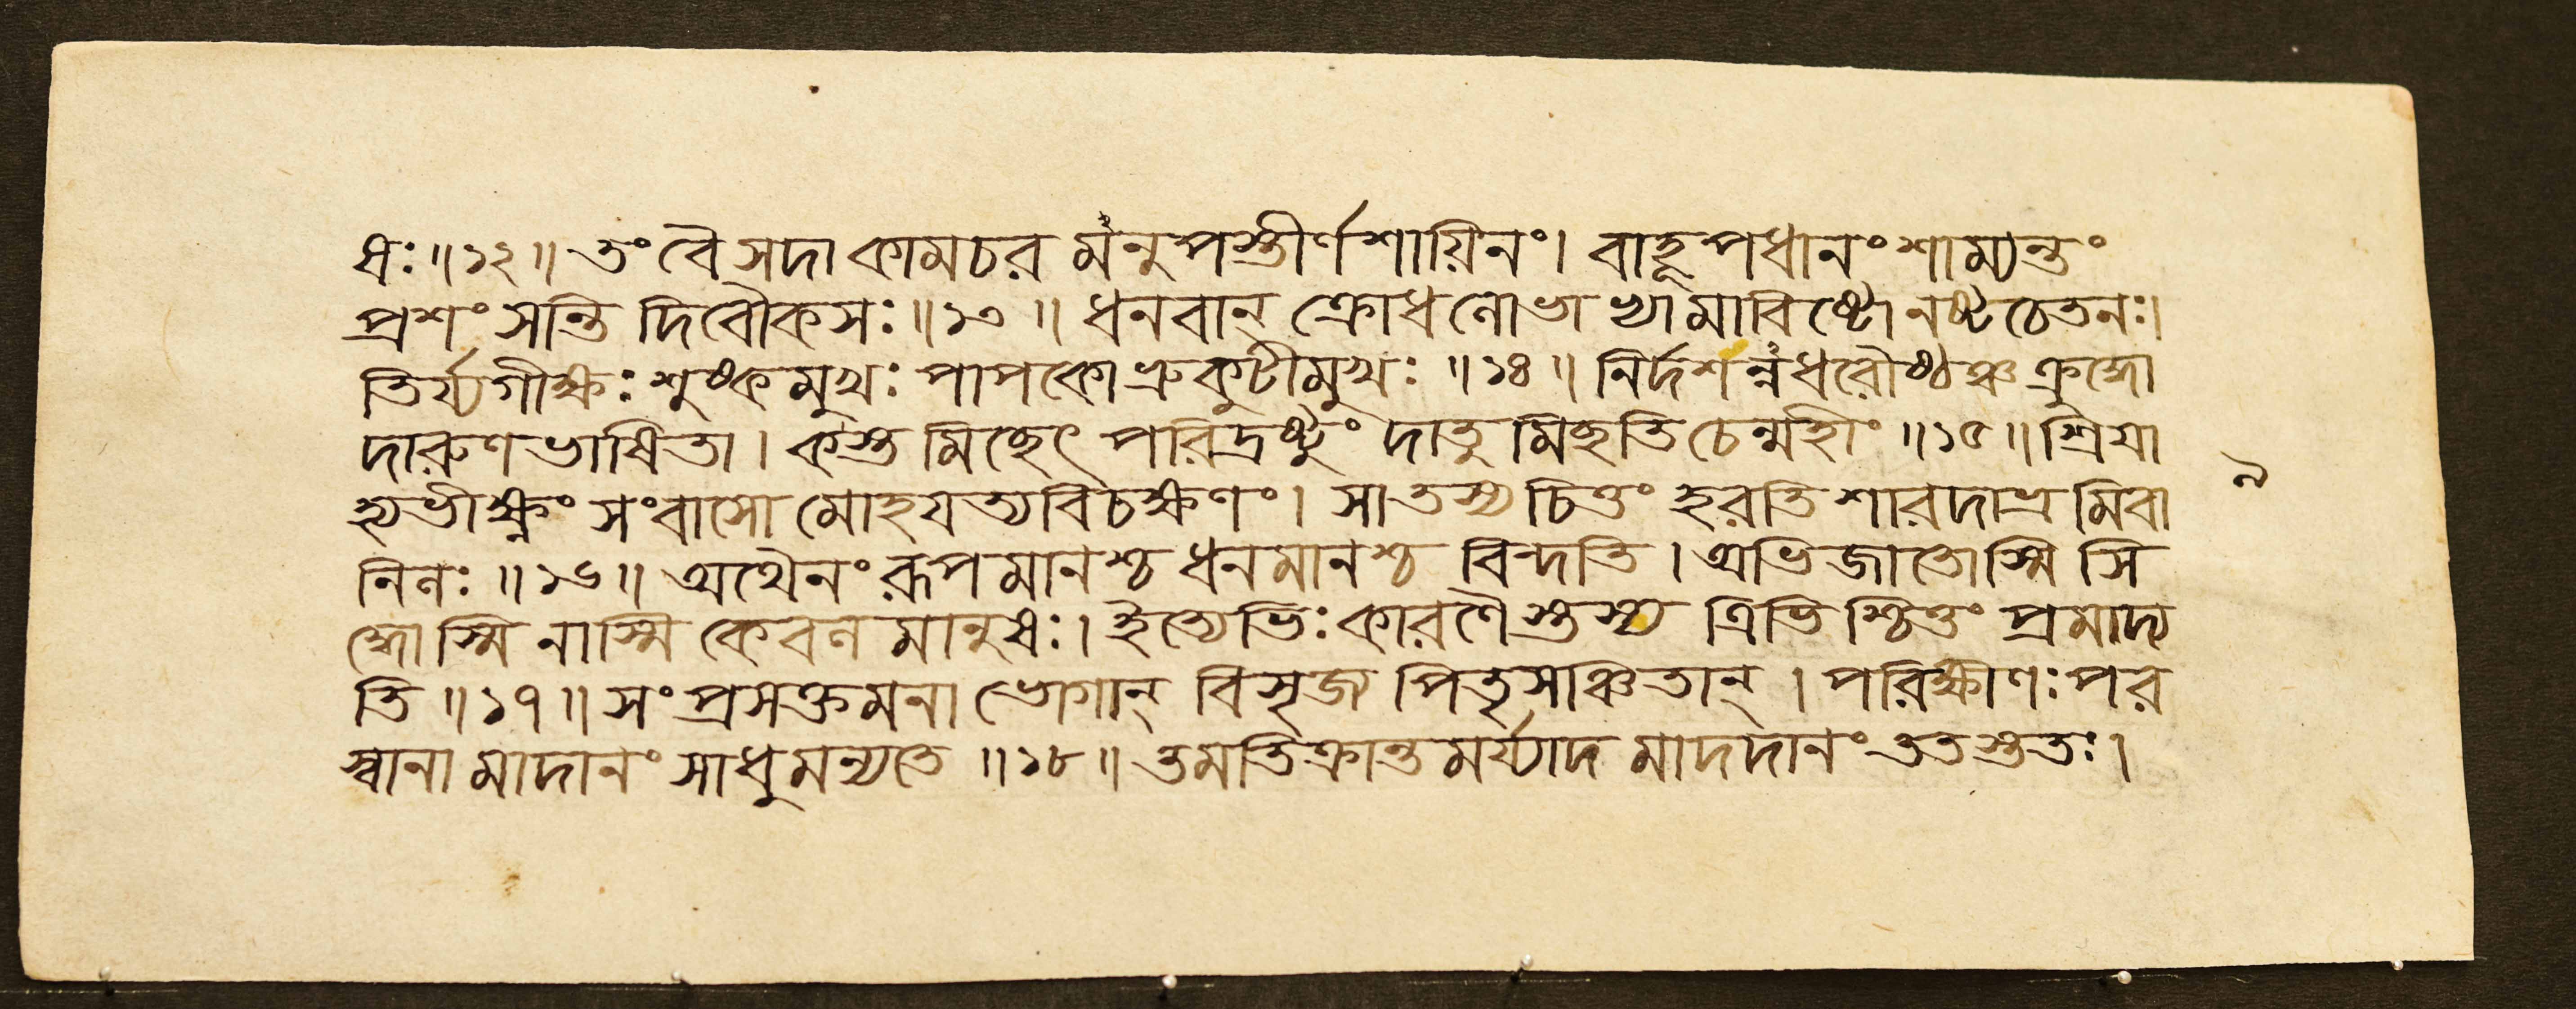 ধঃ ॥ ১২ ॥ তং বৈ সদা কামচর মনুপস্তীর্ণশায়িনং । বাহূপধানং শাম্যন্তং
প্রশংসন্তি দিবৌকসঃ ॥ ১৩ ॥ ধনবান্ ক্রোধলোভাভ্যামাবিষ্টো নষ্টচেতনঃ ।
তির্য্যগীক্ষঃ শুষ্কমুখঃ পাপকো ভ্রুকুটীমুখঃ ॥ ১৪ ॥ নির্দশন্নধরৌষ্ঠঞ্চ ক্রুদ্ধো
দারুণভাষিতা । কস্তমিচ্ছেৎ পরিদ্রষ্টুং দাতুমিচ্ছতি চেন্মহীং ॥ ১৫ ॥ শ্রিয়া
হ্যভীক্ষ্ণং সংবাসো মোহযত্যবিচক্ষণং । সা তস্য চিত্তং হরতি শারদাভ্রমিবা
নিলঃ ॥ ১৬ ॥ অথৈনং রূপমানশ্চ ধনমানশ্চ বিন্দতি । অভিজাতোস্মি সি
দ্ধোস্মি নাস্মি কেবলমানুষঃ । ইত্যেভিঃ কারণৈস্তস্য ত্রিভিশ্চিত্তং প্রমাদ্য
তি ॥ ১৭ ॥ সংপ্রসক্তমনা ভোগান্ বিসৃজ্য পিতৃসঞ্চিতান্ । পরিক্ষীণঃ পর
স্বানামাদানং সাধু মন্যতে ॥ ১৮ ॥ তমতিক্রান্তমর্য্যাদমাদদানং ততস্ততঃ ।